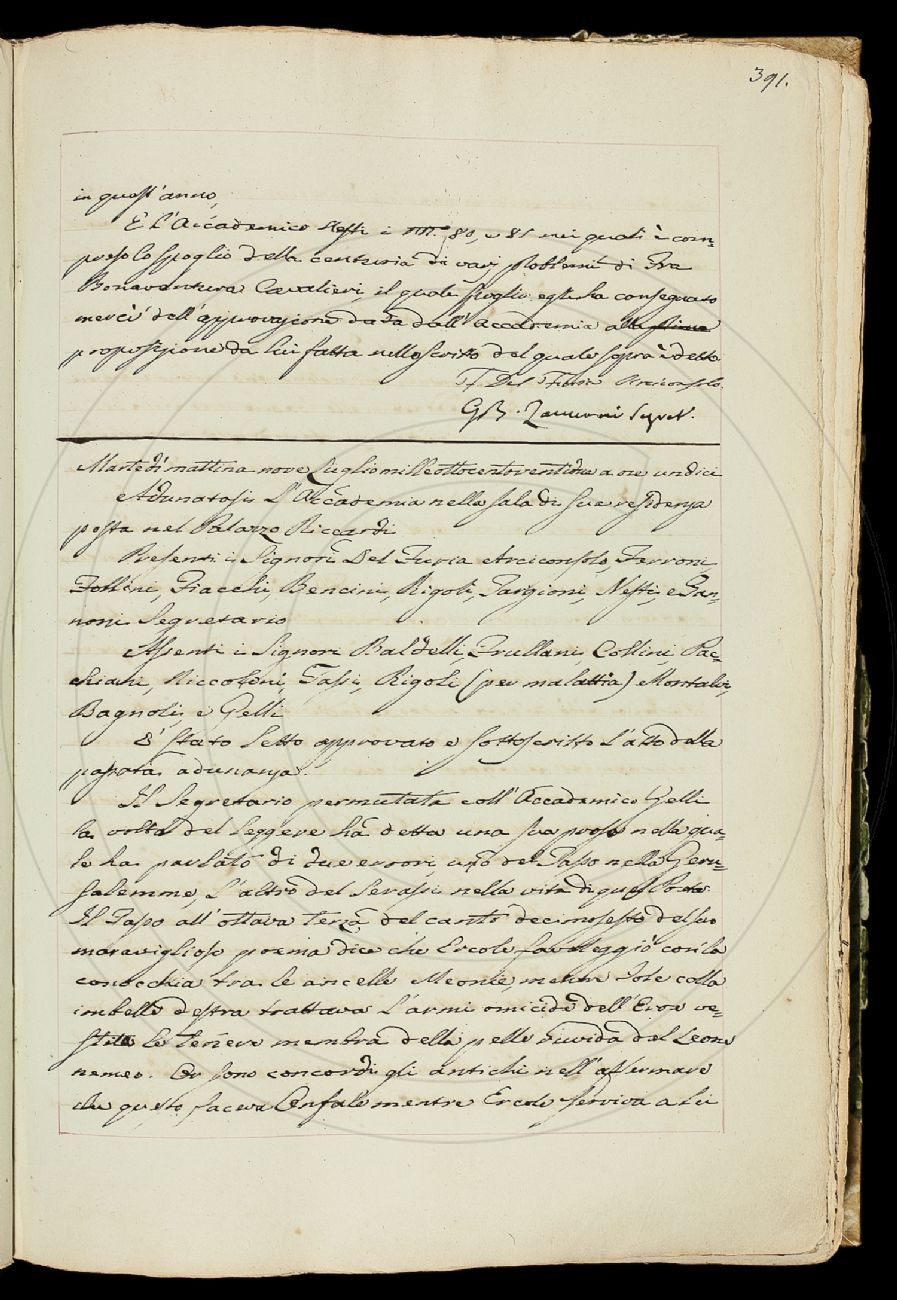 391.
in quest'anno,
E l'Accademico Nesti i nn.i 80, e 81 nei quali è com-
preso lo spoglio della centuria di varj problemi di Fra
Bonaventura Cavalieri, il quale spoglio egli ha consegnato
mercè dell'approvazione data dall'Accademia alla
proposizione da lui fatta nello scritto del quale sopra è detto
F. Del Furia Arciconsolo
G.B. Zannoni Segret.
Martedì mattina nove Luglio mille ottocento ventidue a ore undici
Adunatasi l'Accademia nella sala di sua residenza
posta nel Palazzo Riccardi
Presenti i Signori Del Furia Arciconsolo, Ferroni,
Follini, Fiacchi, Bencini, Rigoli, Targioni, Nesti, e Zan-
noni Segretario
Assenti i Signori Baldelli, Frullani, Collini, Pac-
chiani, Niccolini, Tassi, Rigoli (per malattia) Montalvi,
Bagnoli, e Gelli
È stato letto approvato e sottoscritto l'atto della
passata adunanza.
Il Segretario permutata coll'Accademico Gelli
la volta del leggere ha detta una sua prosa nella qua-
le ha parlato di due errori, uno del Tasso nella Geru-
salemme, l'altro del Serassi nella vita di quel Poeta.
Il Tasso all'ottava terza del canto decimosesto del suo
maraviglioso poema dice che Ercole favoleggiò con la
conocchia tra le ancelle Meonie, mentre Iole colla
imbelle destra trattava l'armi omicide dell'Eroe ve-
stita le tenere membra della pelle ruvida del Leone
nemeo. Or sono concordi gli antichi nell'affermare
che questo faceva Onfale mentre Ercole serviva a lei